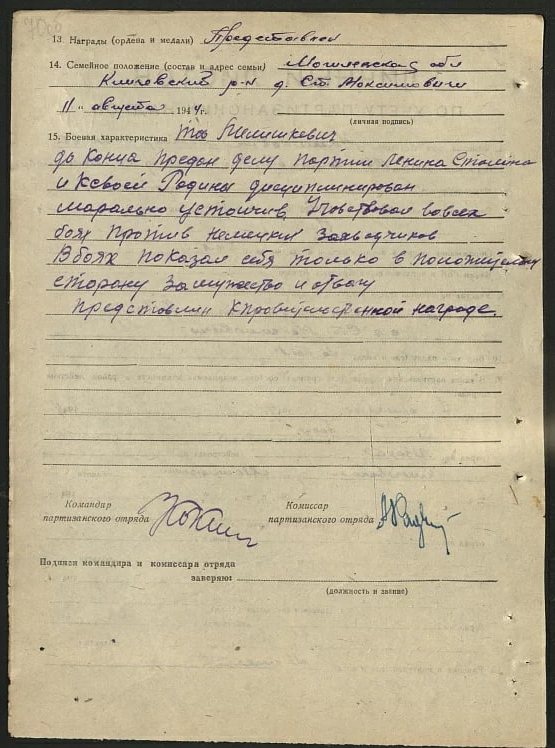 13. Награды (ордена и медали) Представлен
14. Семейное положение (состав и адрес семьи) Могилевская обл
Кличевский р-н д. Ст. Максимовичи
"11" августа 1944г.
(личная подпись)
15. Боевая характеристика тов
до конца предан делу партии Ленина Сталина
и ксвоей Родины дисциплинирован
морально устойчив. Учавствовал вовсех
боях против немецких
Вбоях показал себя только в положительную
сторону за мужество и отвагу
представлен кправительственной награде.
Командир
партизанского отряда
Комиссар
партизанского отряда
Подписи командира и комиссара отряда
заверяю:
(должность и звание)